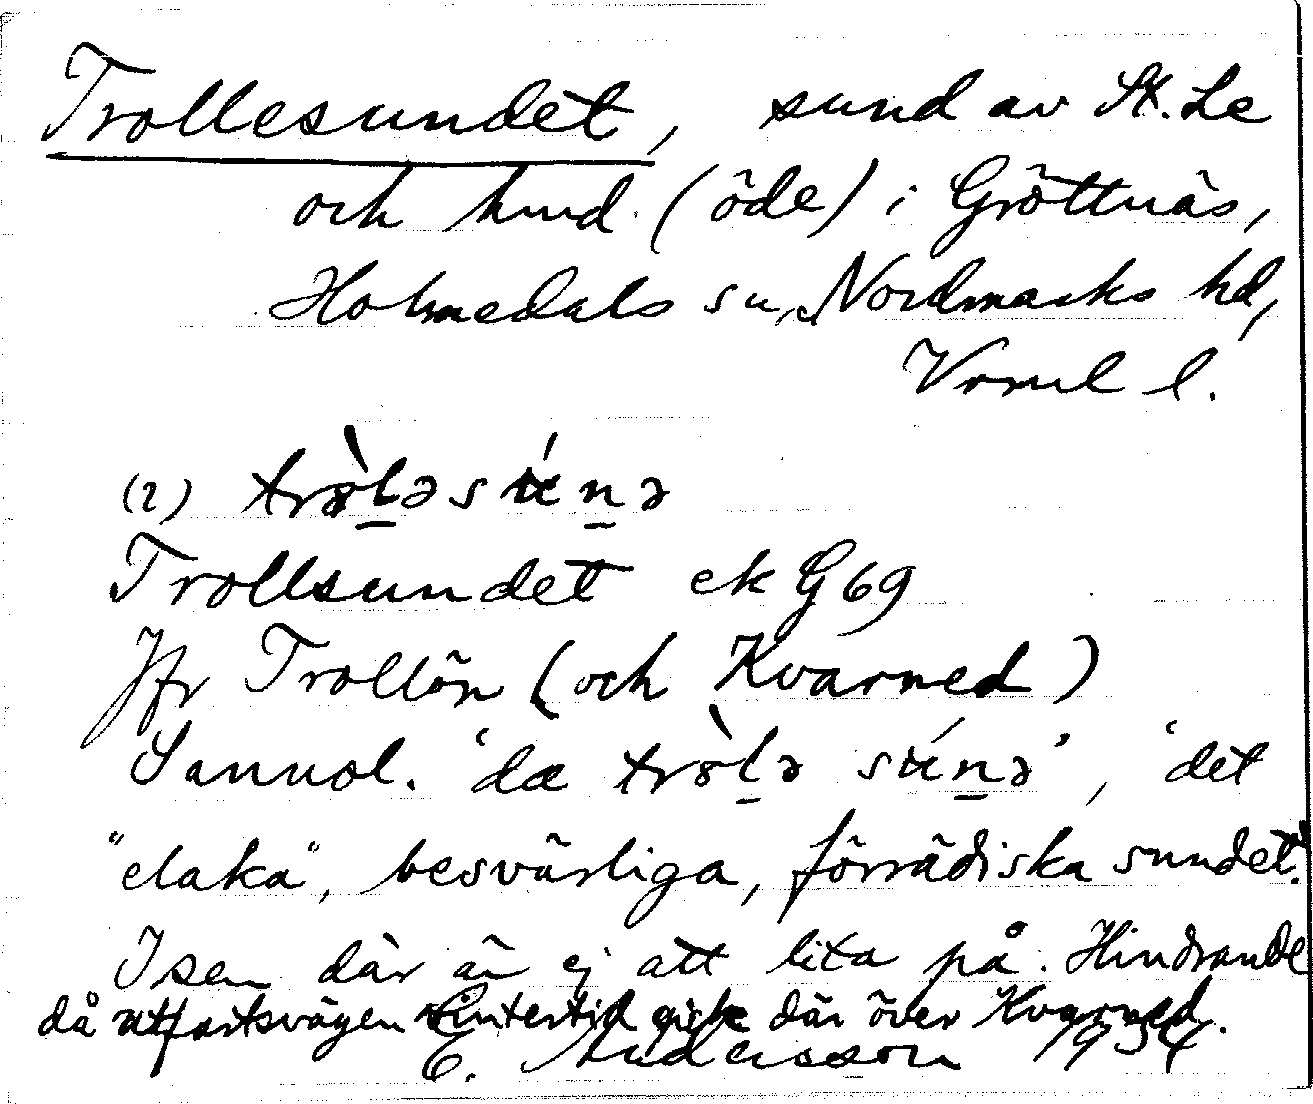 Trollesundet, sund av St. Le
och hmd. (öde) i Gröttnäs,
Holmedals sn, Nordmarks hd,
Vrml l.
(2) trò̀l̲əsʉ́n̲ə
Trollsundet ek G 69
Jfr Trollön (och Kvarned)
Sannol. 'dæ trò̀l̲ə sʉ́n̲ə', 'det
"elaka", besvärliga, förrädiska sundet.'
Isen där är ej att lita på. Hindrande
då utfartsvägen vintertid gick där över Kvarned.
E. Andersson 1934